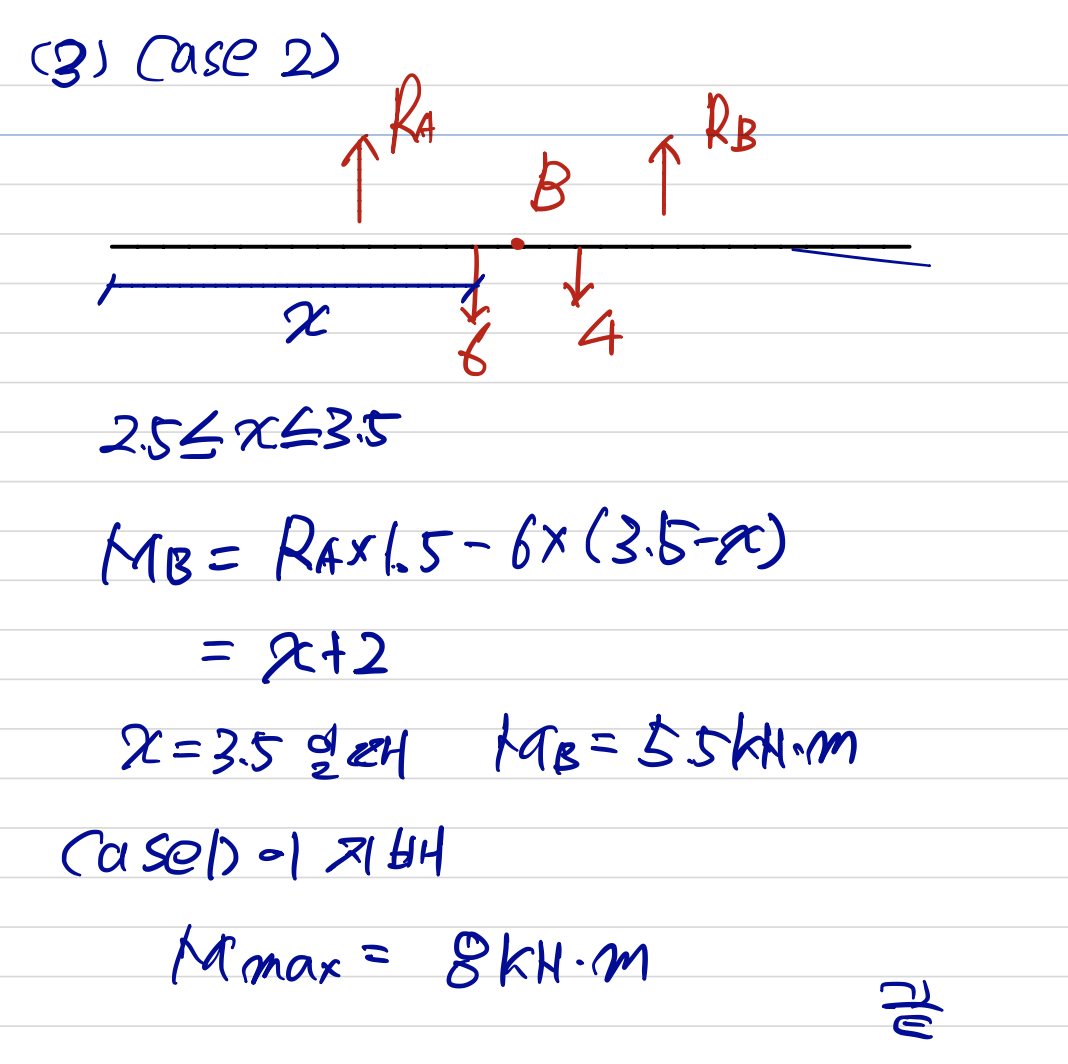 (3) Case 2)
R_A
R_B
B
x
6
4
2.5 ≤ x ≤ 3.5
M_B = R_A × 1.5 - 6 × (3.5 - x)
= x + 2
x = 3.5 일 때 M_B = 5.5 kN·m
Case 1) 이 지배
M_max = 8 kN·m
끝